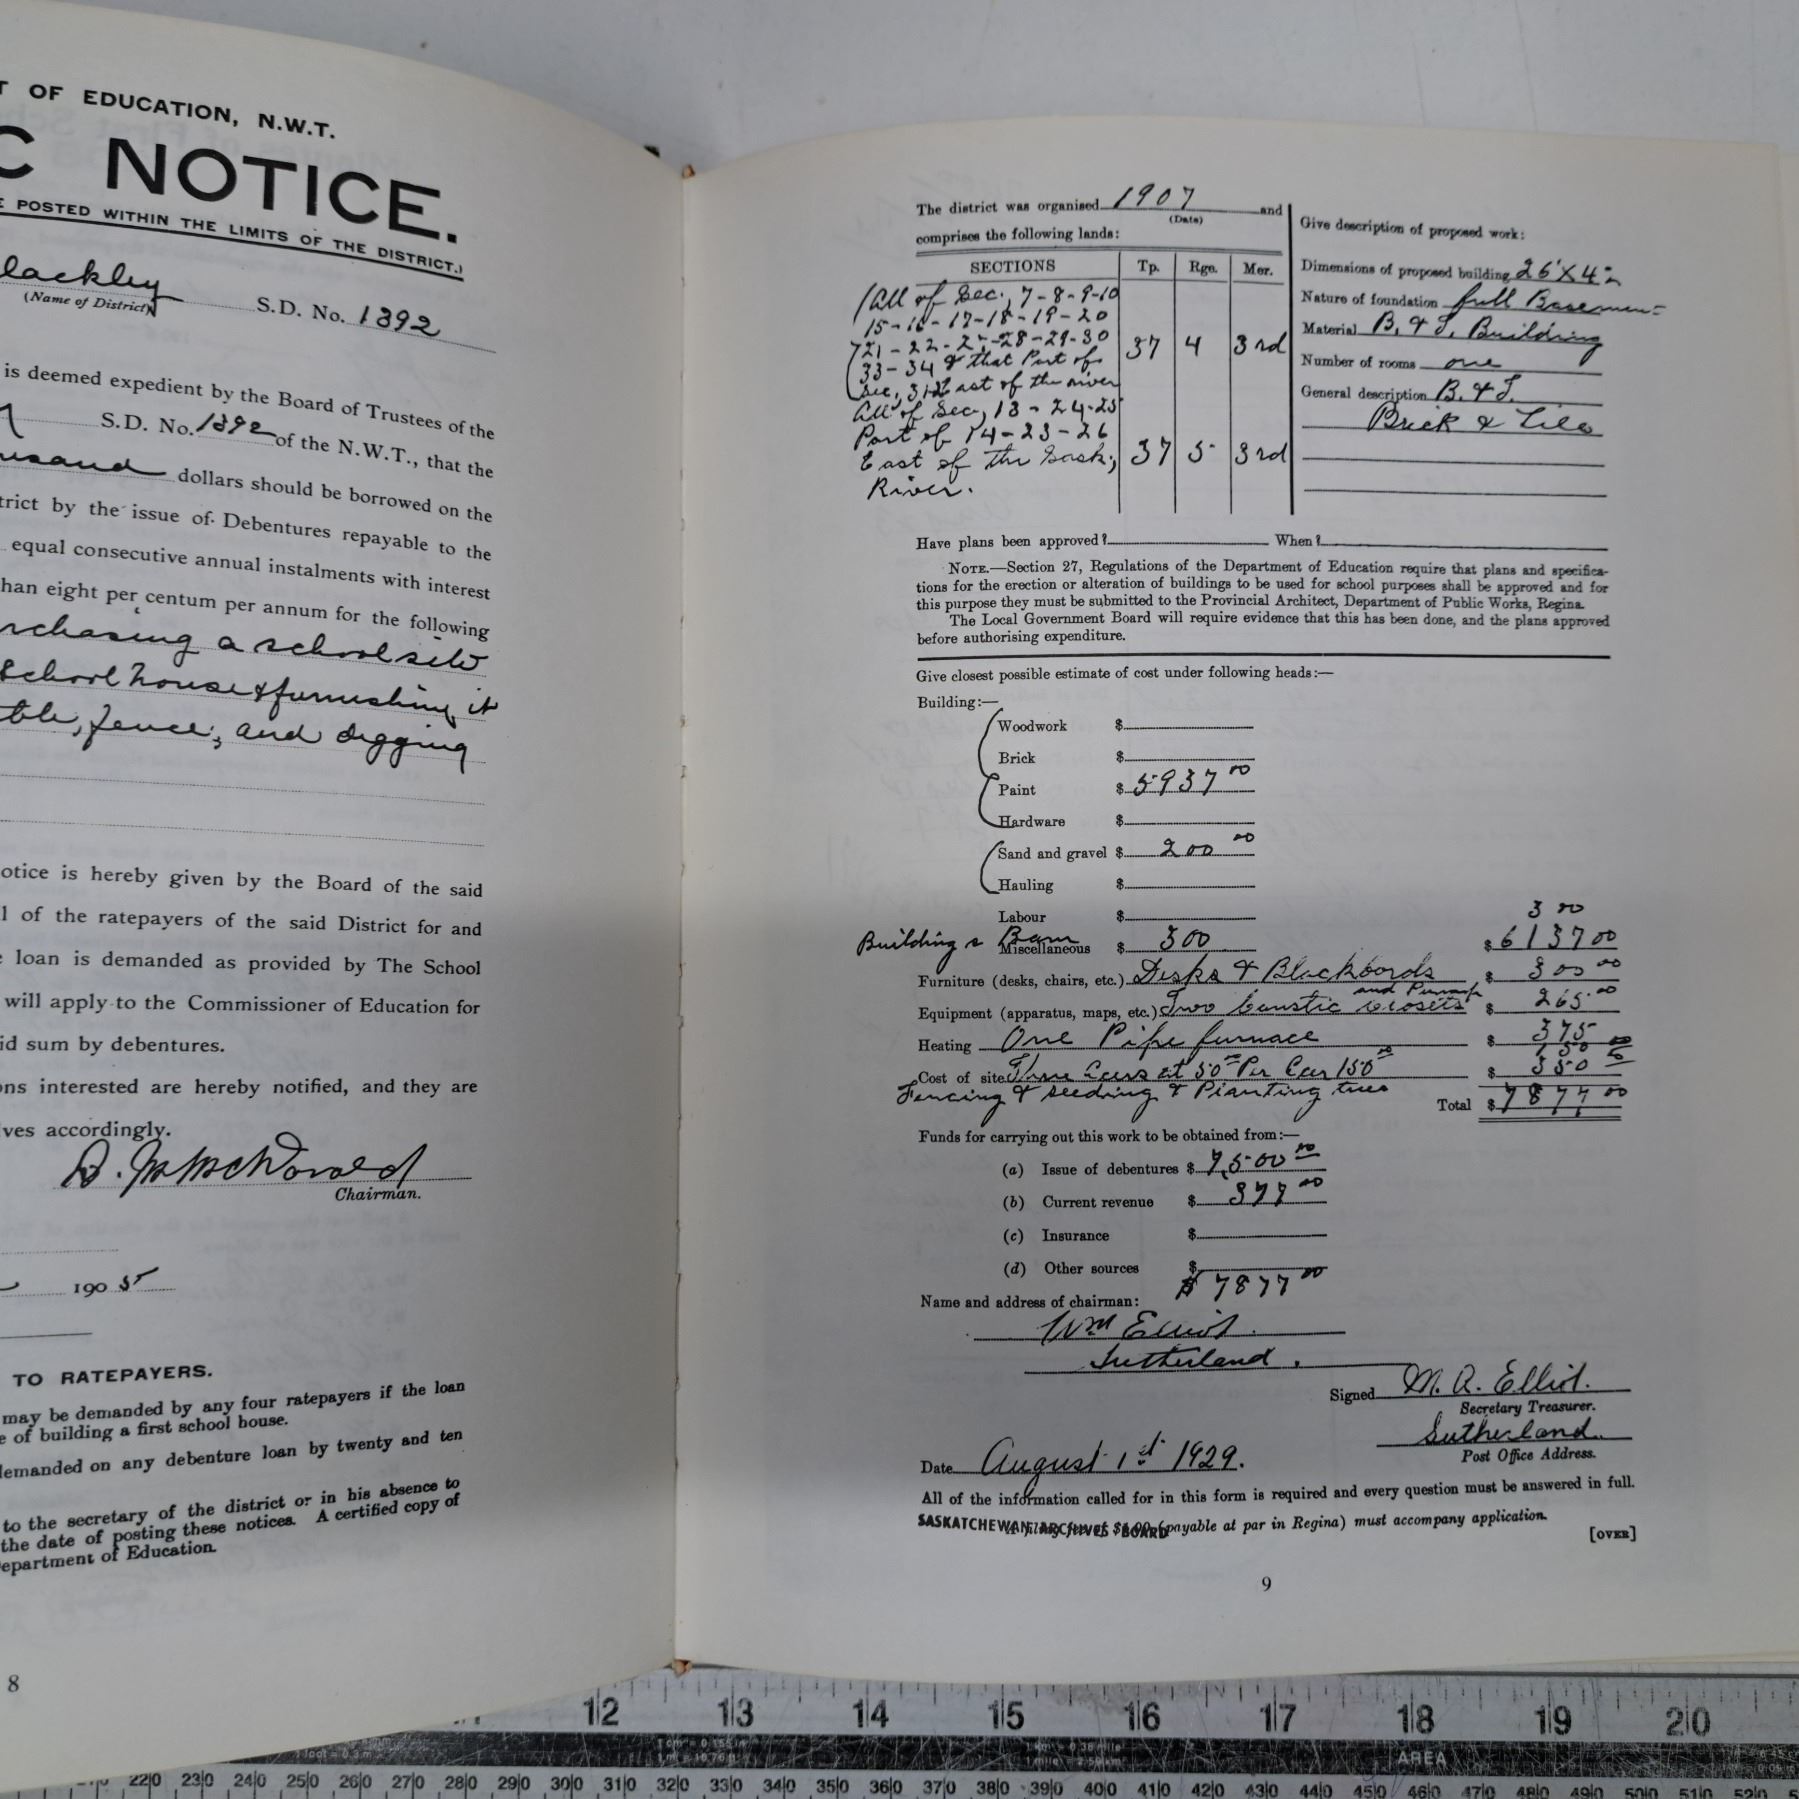 T OF EDUCATION, N.W.T.
C NOTICE.
E POSTED WITHIN THE LIMITS OF THE DISTRICT.)
lackley S.D. No. 1892
(Name of District)
is deemed expedient by the Board of Trustees of the
S.D. No. 1892 of the N.W.T., that the
usand dollars should be borrowed on the
trict by the issue of Debentures repayable to the
equal consecutive annual instalments with interest
han eight per centum per annum for the following
rchasing a school site
School house & furnishing it
ble, fence, and digging
otice is hereby given by the Board of the said
l of the ratepayers of the said District for and
e loan is demanded as provided by The School
will apply to the Commissioner of Education for
id sum by debentures.
ons interested are hereby notified, and they are
ves accordingly.
McDonald
Chairman.
1905
TO RATEPAYERS.
may be demanded by any four ratepayers if the loan
e of building a first school house.
demanded on any debenture loan by twenty and ten
to the secretary of the district or in his absence to
the date of posting these notices. A certified copy of
epartment of Education.
8
The district was organised 1907 and
(Date)
comprises the following lands:
SECTIONS Tp. Rge. Mer.
All of Sec, 7-8-9-10
15-16-17-18-19-20
21-22-27-28-29-30
33-34 & that Part of
Sec, 31 East of the river
37 4 3rd
All of Sec, 13-24-25
Part of 14-23-26
East of the Sask,
River.
37 5 3rd
Give description of proposed work:
Dimensions of proposed building 26'X42
Nature of foundation full Basement
Material B. & T. Building
Number of rooms one
General description B. & T.
Brick & Tile
Have plans been approved? When?
NOTE.—Section 27, Regulations of the Department of Education require that plans and specifica-
tions for the erection or alteration of buildings to be used for school purposes shall be approved and for
this purpose they must be submitted to the Provincial Architect, Department of Public Works, Regina.
The Local Government Board will require evidence that this has been done, and the plans approved
before authorising expenditure.
Give closest possible estimate of cost under following heads:—
Building:—
Woodwork $
Brick $
Paint $ 5937 00
Hardware $
Sand and gravel $ 200 00
Hauling $
Labour $
300
Building & Barn Miscellaneous $ 300 $ 6137 00
Furniture (desks, chairs, etc.) Desks & Blackbords $ 300 00
and
Equipment (apparatus, maps, etc.) Two Caustic closets $ 265.00
Heating One Pipe furnace $ 375
150 00
Cost of site Three Cars at 50 00 Per Car 150 00 $ 350 00
Fencing & seeding & Planting trees
Total $ 7877 00
Funds for carrying out this work to be obtained from:—
(a) Issue of debentures $ 7,500 00
(b) Current revenue $ 377 00
(c) Insurance $
(d) Other sources $
$ 7877 00
Name and address of chairman:
Wm Elliot.
Sutherland.
Signed M. R. Elliot.
Secretary Treasurer.
Sutherland.
Post Office Address.
Date August 1st 1929.
All of the information called for in this form is required and every question must be answered in full.
SASKATCHEWAN ARCHIVES BOARD
(payable at par in Regina) must accompany application.
[OVER]
9
12 13 14 15 16 17 18 19 20
AREA
220 230 240 250 260 270 280 290 300 310 320 330 340 350 360 370 380 390 400 410 420 430 440 450 460 470 480 490 500 510 520